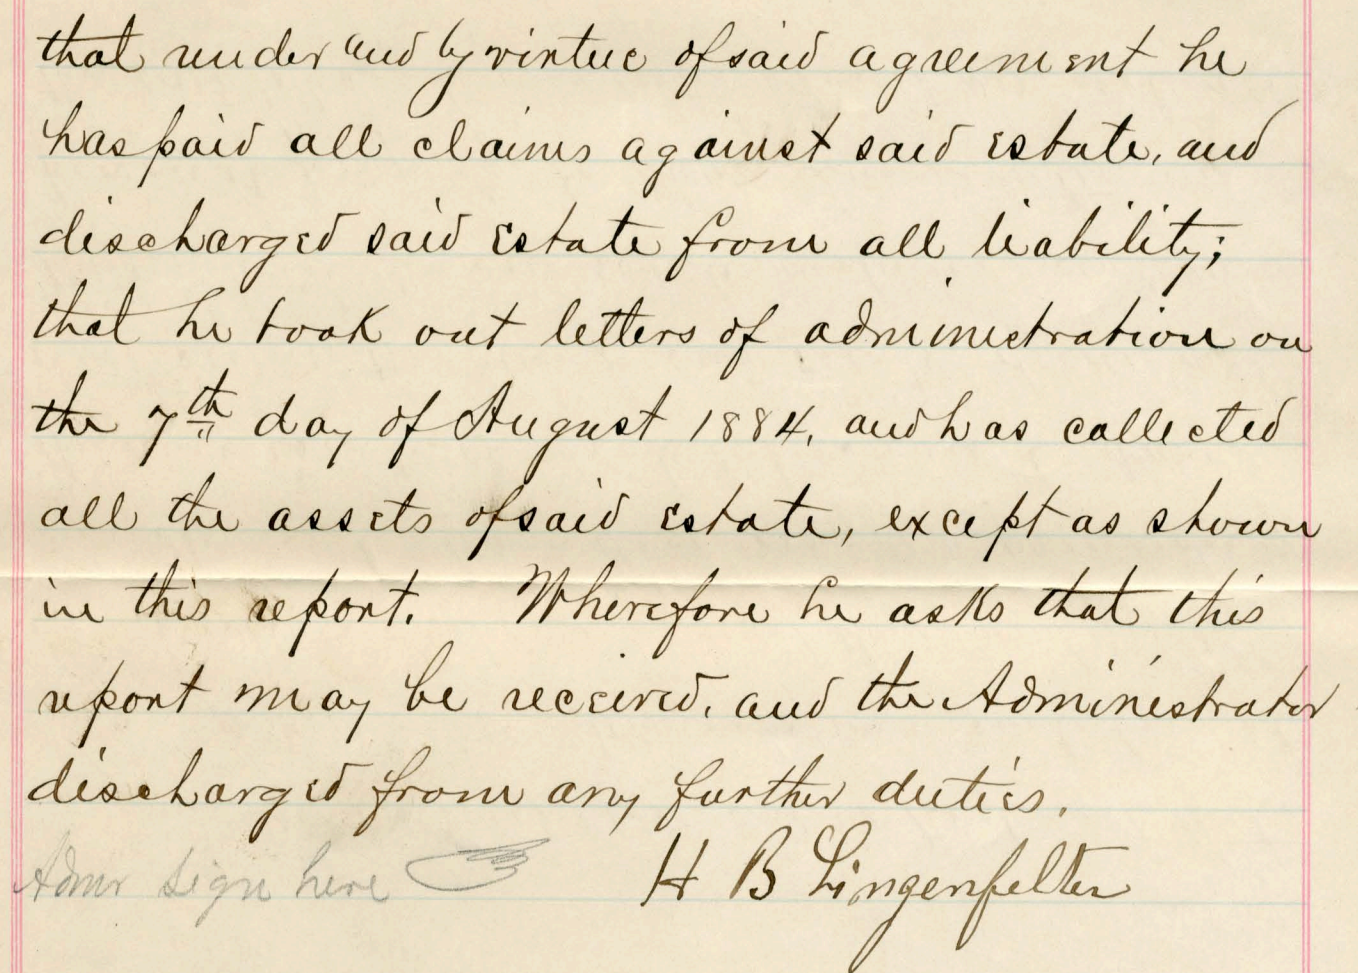 that under and by virtue of said agreement he
has paid all claims against said estate, and
discharged said estate from all liability;
that he took out letters of administration on
the 7th day of August 1884, and has collected
all the assets of said estate, except as shown
in this report. Wherefore he asks that this
report may be received, and the Administrator
discharged from any further duties.
Admr sign here H B Lingenfelter